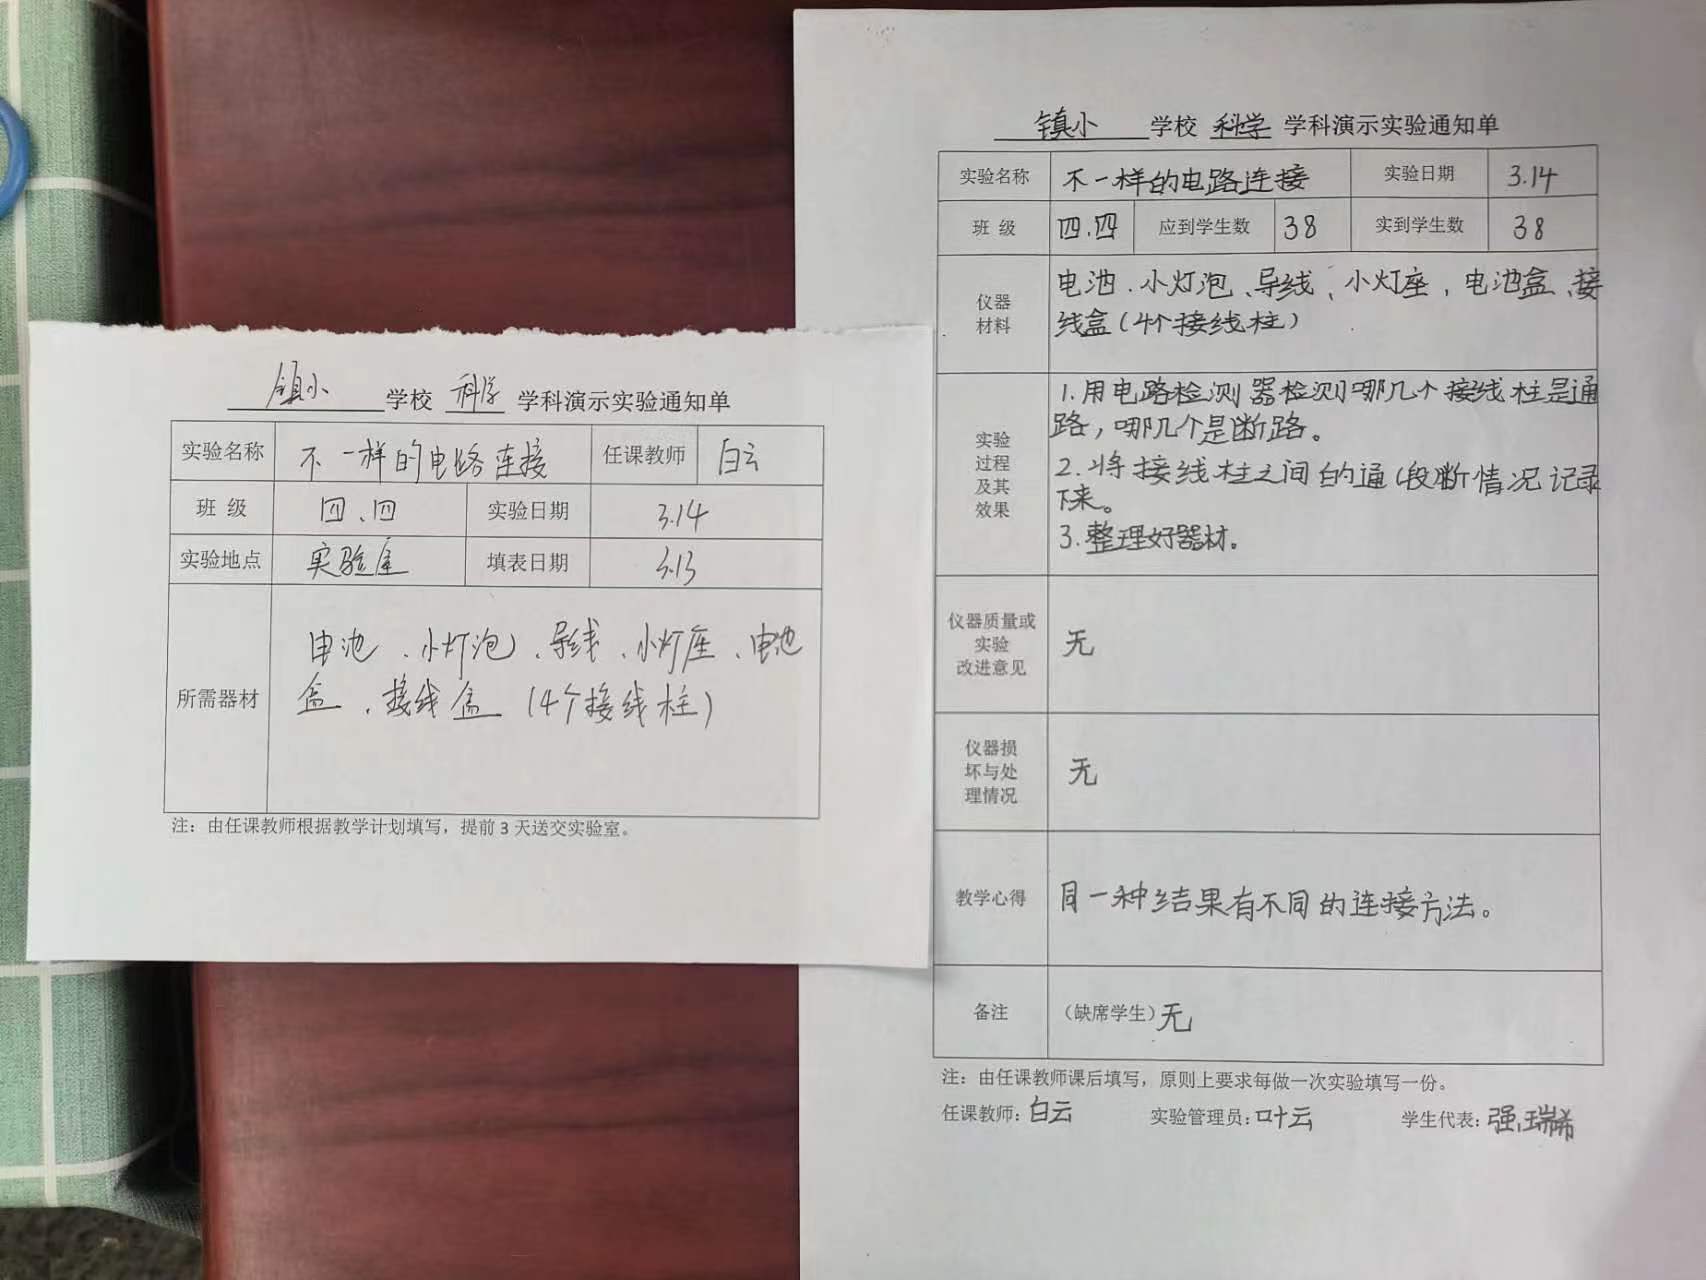 镇小 学校 科学 学科演示实验通知单
实验名称 不一样的电路连接 任课教师 白云
班 级 四、四 实验日期 3.14
实验地点 实验室 填表日期 3.13
所需器材
电池、小灯泡、导线、小灯座、电池
盒、接线盒(4个接线柱)
注：由任课教师根据教学计划填写，提前 3 天送交实验室。
镇小 学校 科学 学科演示实验通知单
实验名称 不一样的电路连接 实验日期 3.14
班 级 四.四 应到学生数 38 实到学生数 38
仪器
材料
电池、小灯泡、导线、小灯座、电池盒、接
线盒(4个接线柱)
实验
过程
及其
效果
1.用电路检测器检测哪几个接线柱是通
路，哪几个是断路。
2.将接线柱之间的通断情况记录
下来。
3.整理好器材。
仪器质量或
实验
改进意见
无
仪器损
坏与处
理情况
无
教学心得 同一种结果有不同的连接方法。
备注 （缺席学生）无
注：由任课教师课后填写，原则上要求每做一次实验填写一份。
任课教师：白云 实验管理员：叶云 学生代表：强瑞希